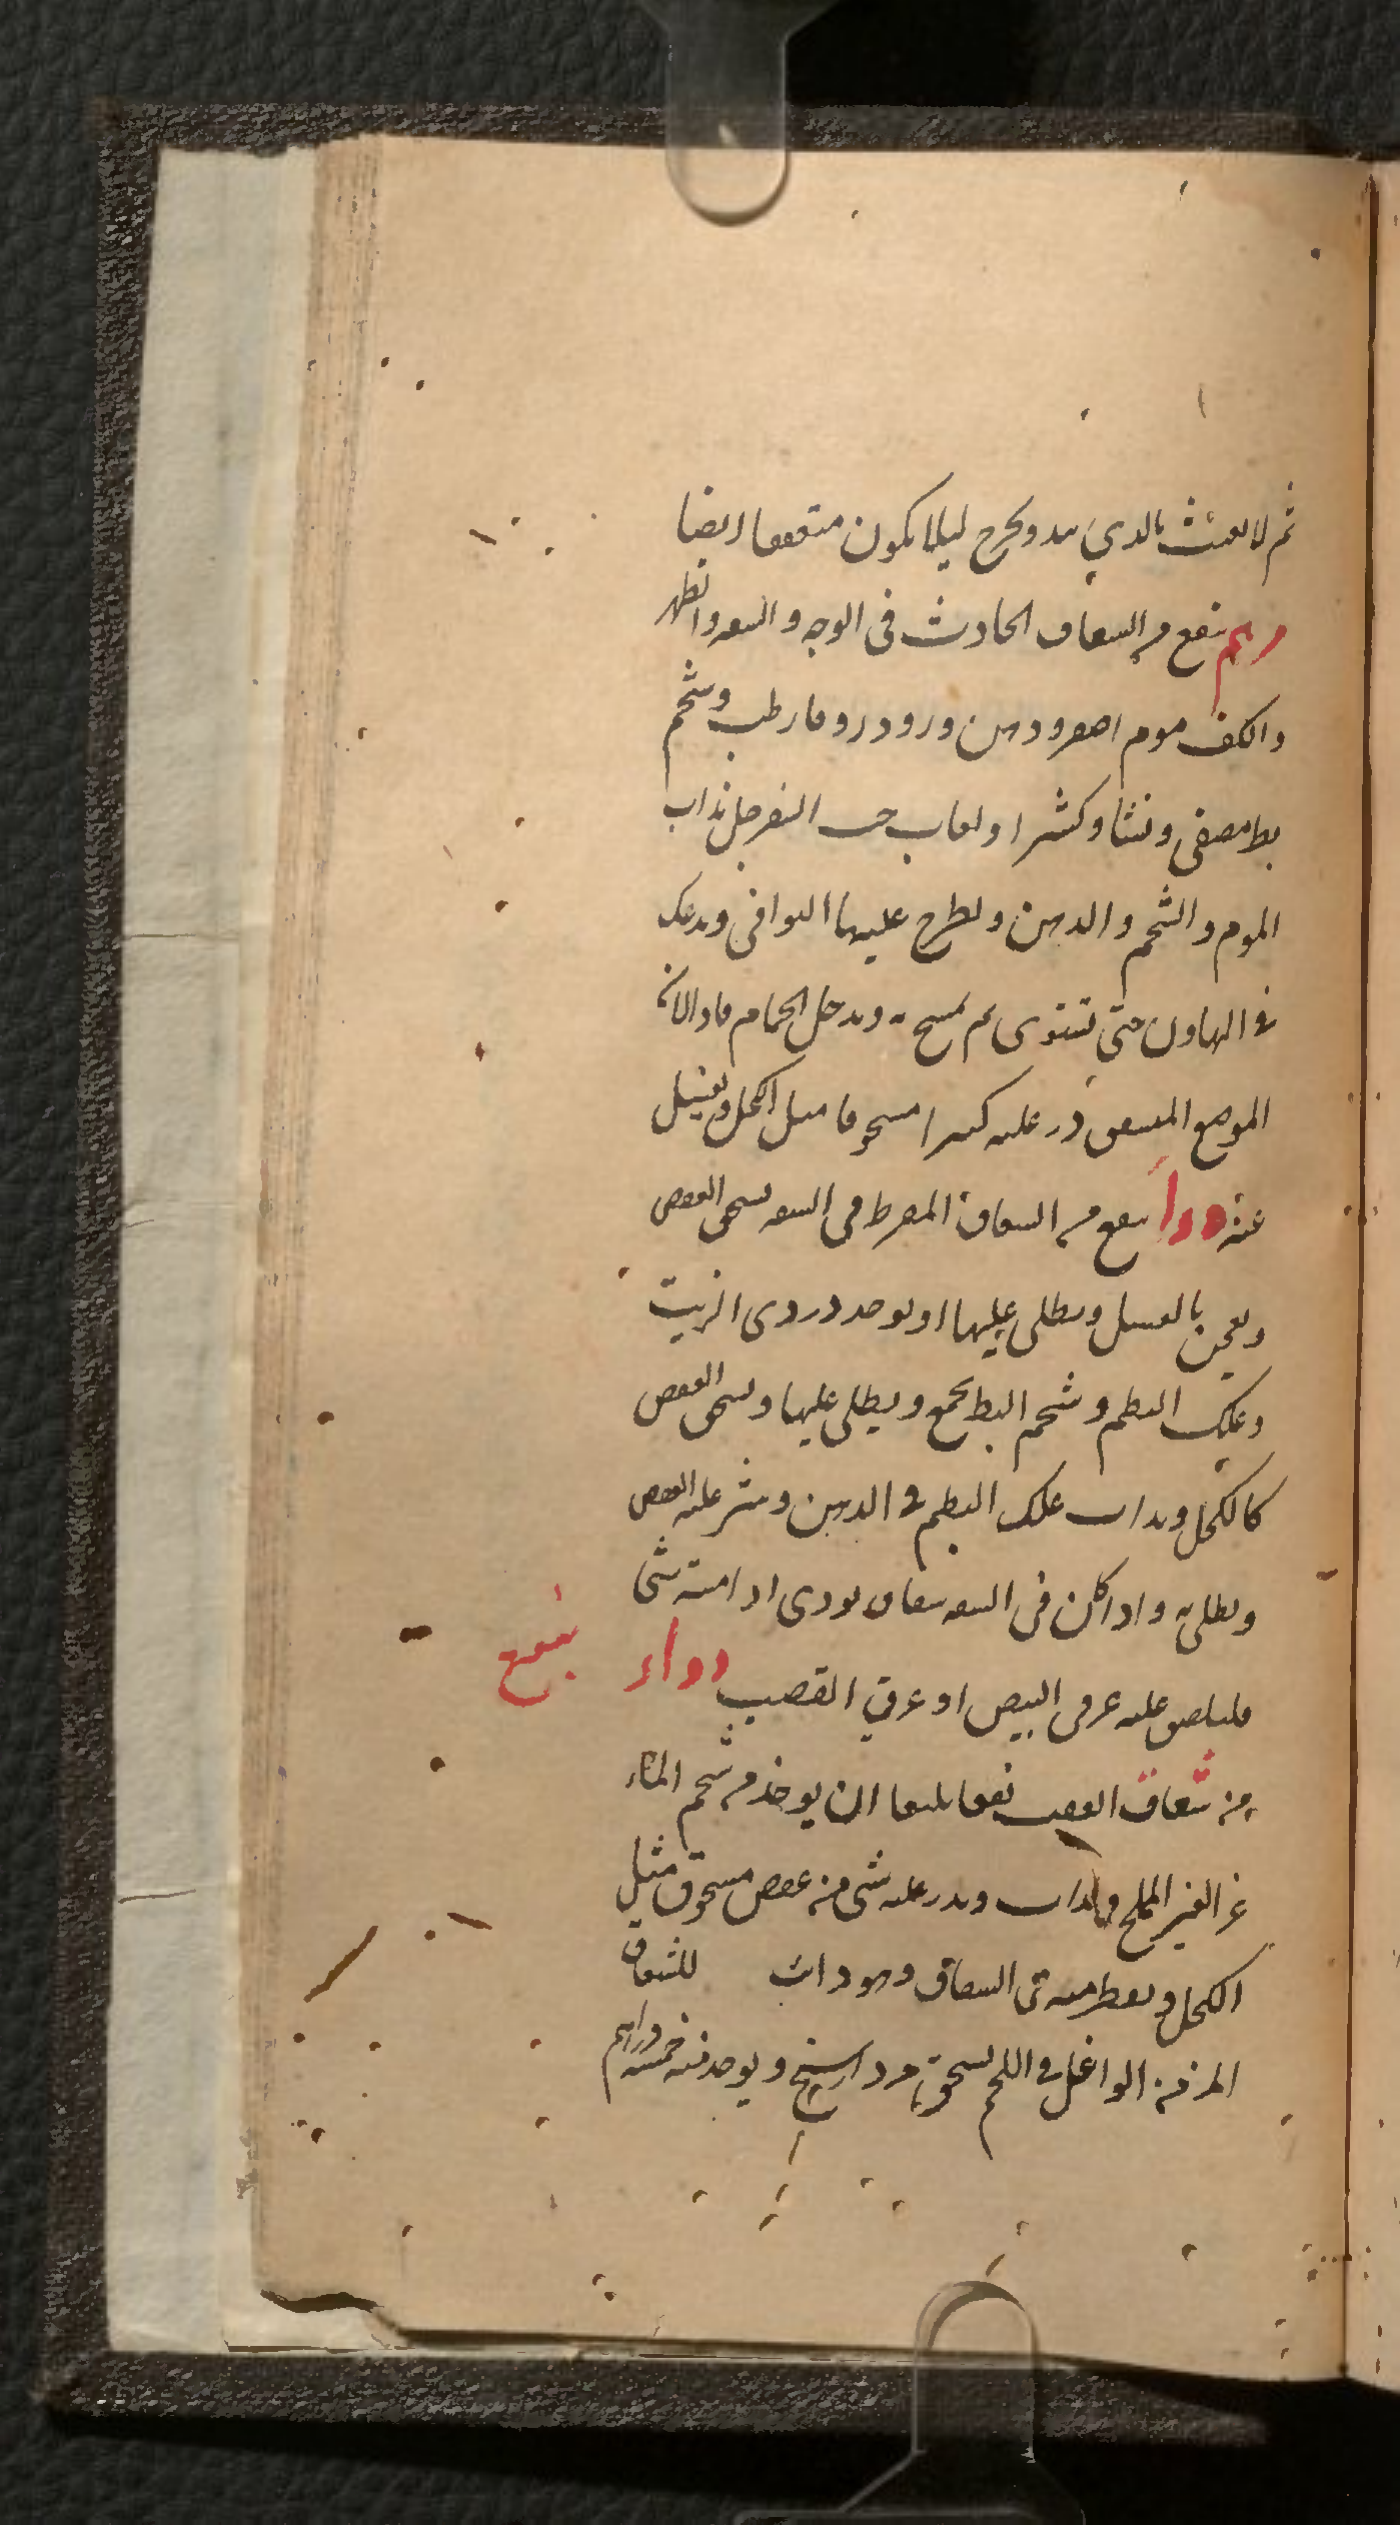 ثم لا يعبث بالذي يبدو يخرج ليلا يكون متقفعا ايضا
مرهم ينفع من الشقاق الحادث في الوجه والشفه والظهر
والكف موم اصفر ودهن ورد وزوفا رطب وشحم
بط مصفى ونشا وكثيرا ولعاب حب السفرجل يذاب
الموم والشحم والدهن ويطرح عليها البواقي ويدعك
في الهاون حتي تستوى ثم يمسح به ويدخل الحمام فاذا لان
الموضع المتشقق ذر عليه كثيرا مسحوقا مثل الكحل ويغسل
عنه دوا ينفع من الشقاق المفرط في الشفه يسحق العفص
ويعجن بالعسل ويطلى عليها او يوخذ دردى الزيت
وعلك البطم وشحم البط يجمع ويطلى عليها ويسحق العفص
كالكحل ويذاب علك البطم في الدهن وينثر عليه العفص
ويطلى به واذا كان في الشفه شقاق يودى اذا مسه شى
فليلصق عليه عرقى البيض او عرقي القصب دواء ينفع
من شقاق العقب نفعا بليغا ان يوخذ من شحم الماء
عز الغير المملح ويذاب ويذر عليه شى من عفص مسحوق مثل
الكحل ويقطر منه في الشقاق وهو ذائب للشقاق
المزمن الواغل في اللحم يسحق مرداسنج ويوخذ منه خمسه دراهم